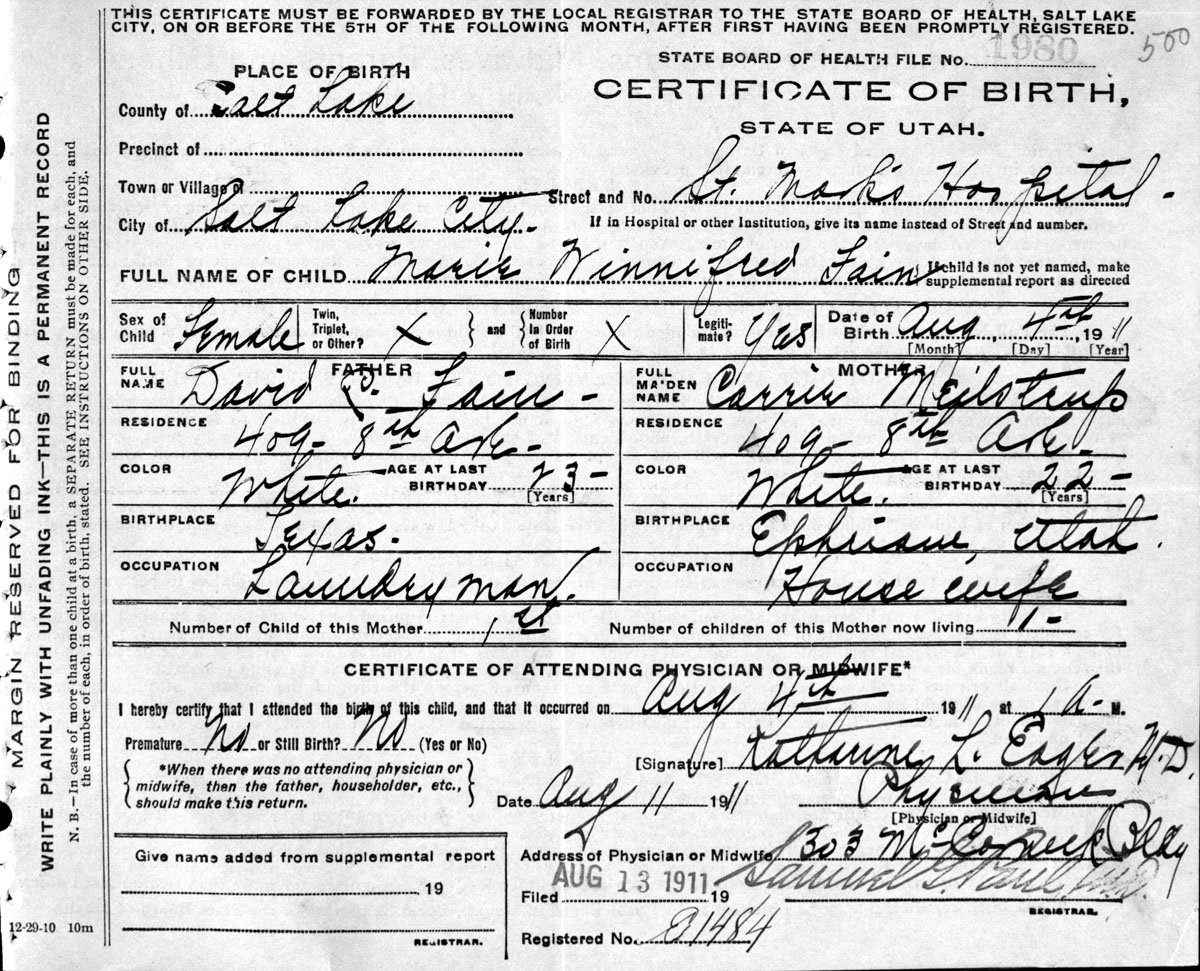 THIS CERTIFICATE MUST BE FORWARDED BY THE LOCAL REGISTRAR TO THE STATE BOARD OF HEALTH, SALT LAKE
CITY, ON OR BEFORE THE 5TH OF THE FOLLOWING MONTH, AFTER FIRST HAVING BEEN PROMPTLY REGISTERED.
MARGIN RESERVED FOR BINDING
WRITE PLAINLY WITH UNFADING INK—THIS IS A PERMANENT RECORD
N. B.—In case of more than one child at a birth, a SEPARATE RETURN must be made for each, and
the number of each, in order of birth, stated. SEE INSTRUCTIONS ON OTHER SIDE.
500
STATE BOARD OF HEALTH FILE No. 1980
PLACE OF BIRTH
CERTIFICATE OF BIRTH,
STATE OF UTAH.
County of Salt Lake
Precinct of
Town or Village of
Street and No. St. Mark's Hospital -
City of Salt Lake City.
If in Hospital or other Institution, give its name instead of Street and number.
FULL NAME OF CHILD Marie Winnifred Fain
If child is not yet named, make
supplemental report as directed
Sex of Child Female
Twin, Triplet, or Other? X
and Number in Order of Birth X
Legiti-mate? Yes
Date of Birth Aug 4th, 1911
[Month] [Day] [Year]
FATHER
MOTHER
FULL NAME David C. Fain -
FULL MAIDEN NAME Carrie Meilstrup
RESIDENCE 409 - 8th Ave -
RESIDENCE 409 - 8th Ave -
COLOR White. AGE AT LAST BIRTHDAY 23 - [Years]
COLOR White. AGE AT LAST BIRTHDAY 22 - [Years]
BIRTHPLACE Texas.
BIRTHPLACE Ephriam, Utah.
OCCUPATION Laundry man.
OCCUPATION House wife
Number of Child of this Mother 1st
Number of children of this Mother now living 1 -
CERTIFICATE OF ATTENDING PHYSICIAN OR MIDWIFE*
I hereby certify that I attended the birth of this child, and that it occurred on Aug 4th 1911 at 1 A. M.
Premature No or Still Birth? No (Yes or No)
*When there was no attending physician or
midwife, then the father, householder, etc.,
should make this return.
[Signature] Katharine L. Eagles M.D.
Date Aug 11 1911
Physician
[Physician or Midwife]
Address of Physician or Midwife 303 McCornick Bldg
Give name added from supplemental report
19
REGISTRAR.
Filed AUG 13 1911 19
Samuel G. Paul, M.D.
REGISTRAR.
Registered No. a1484
12-29-10 10m